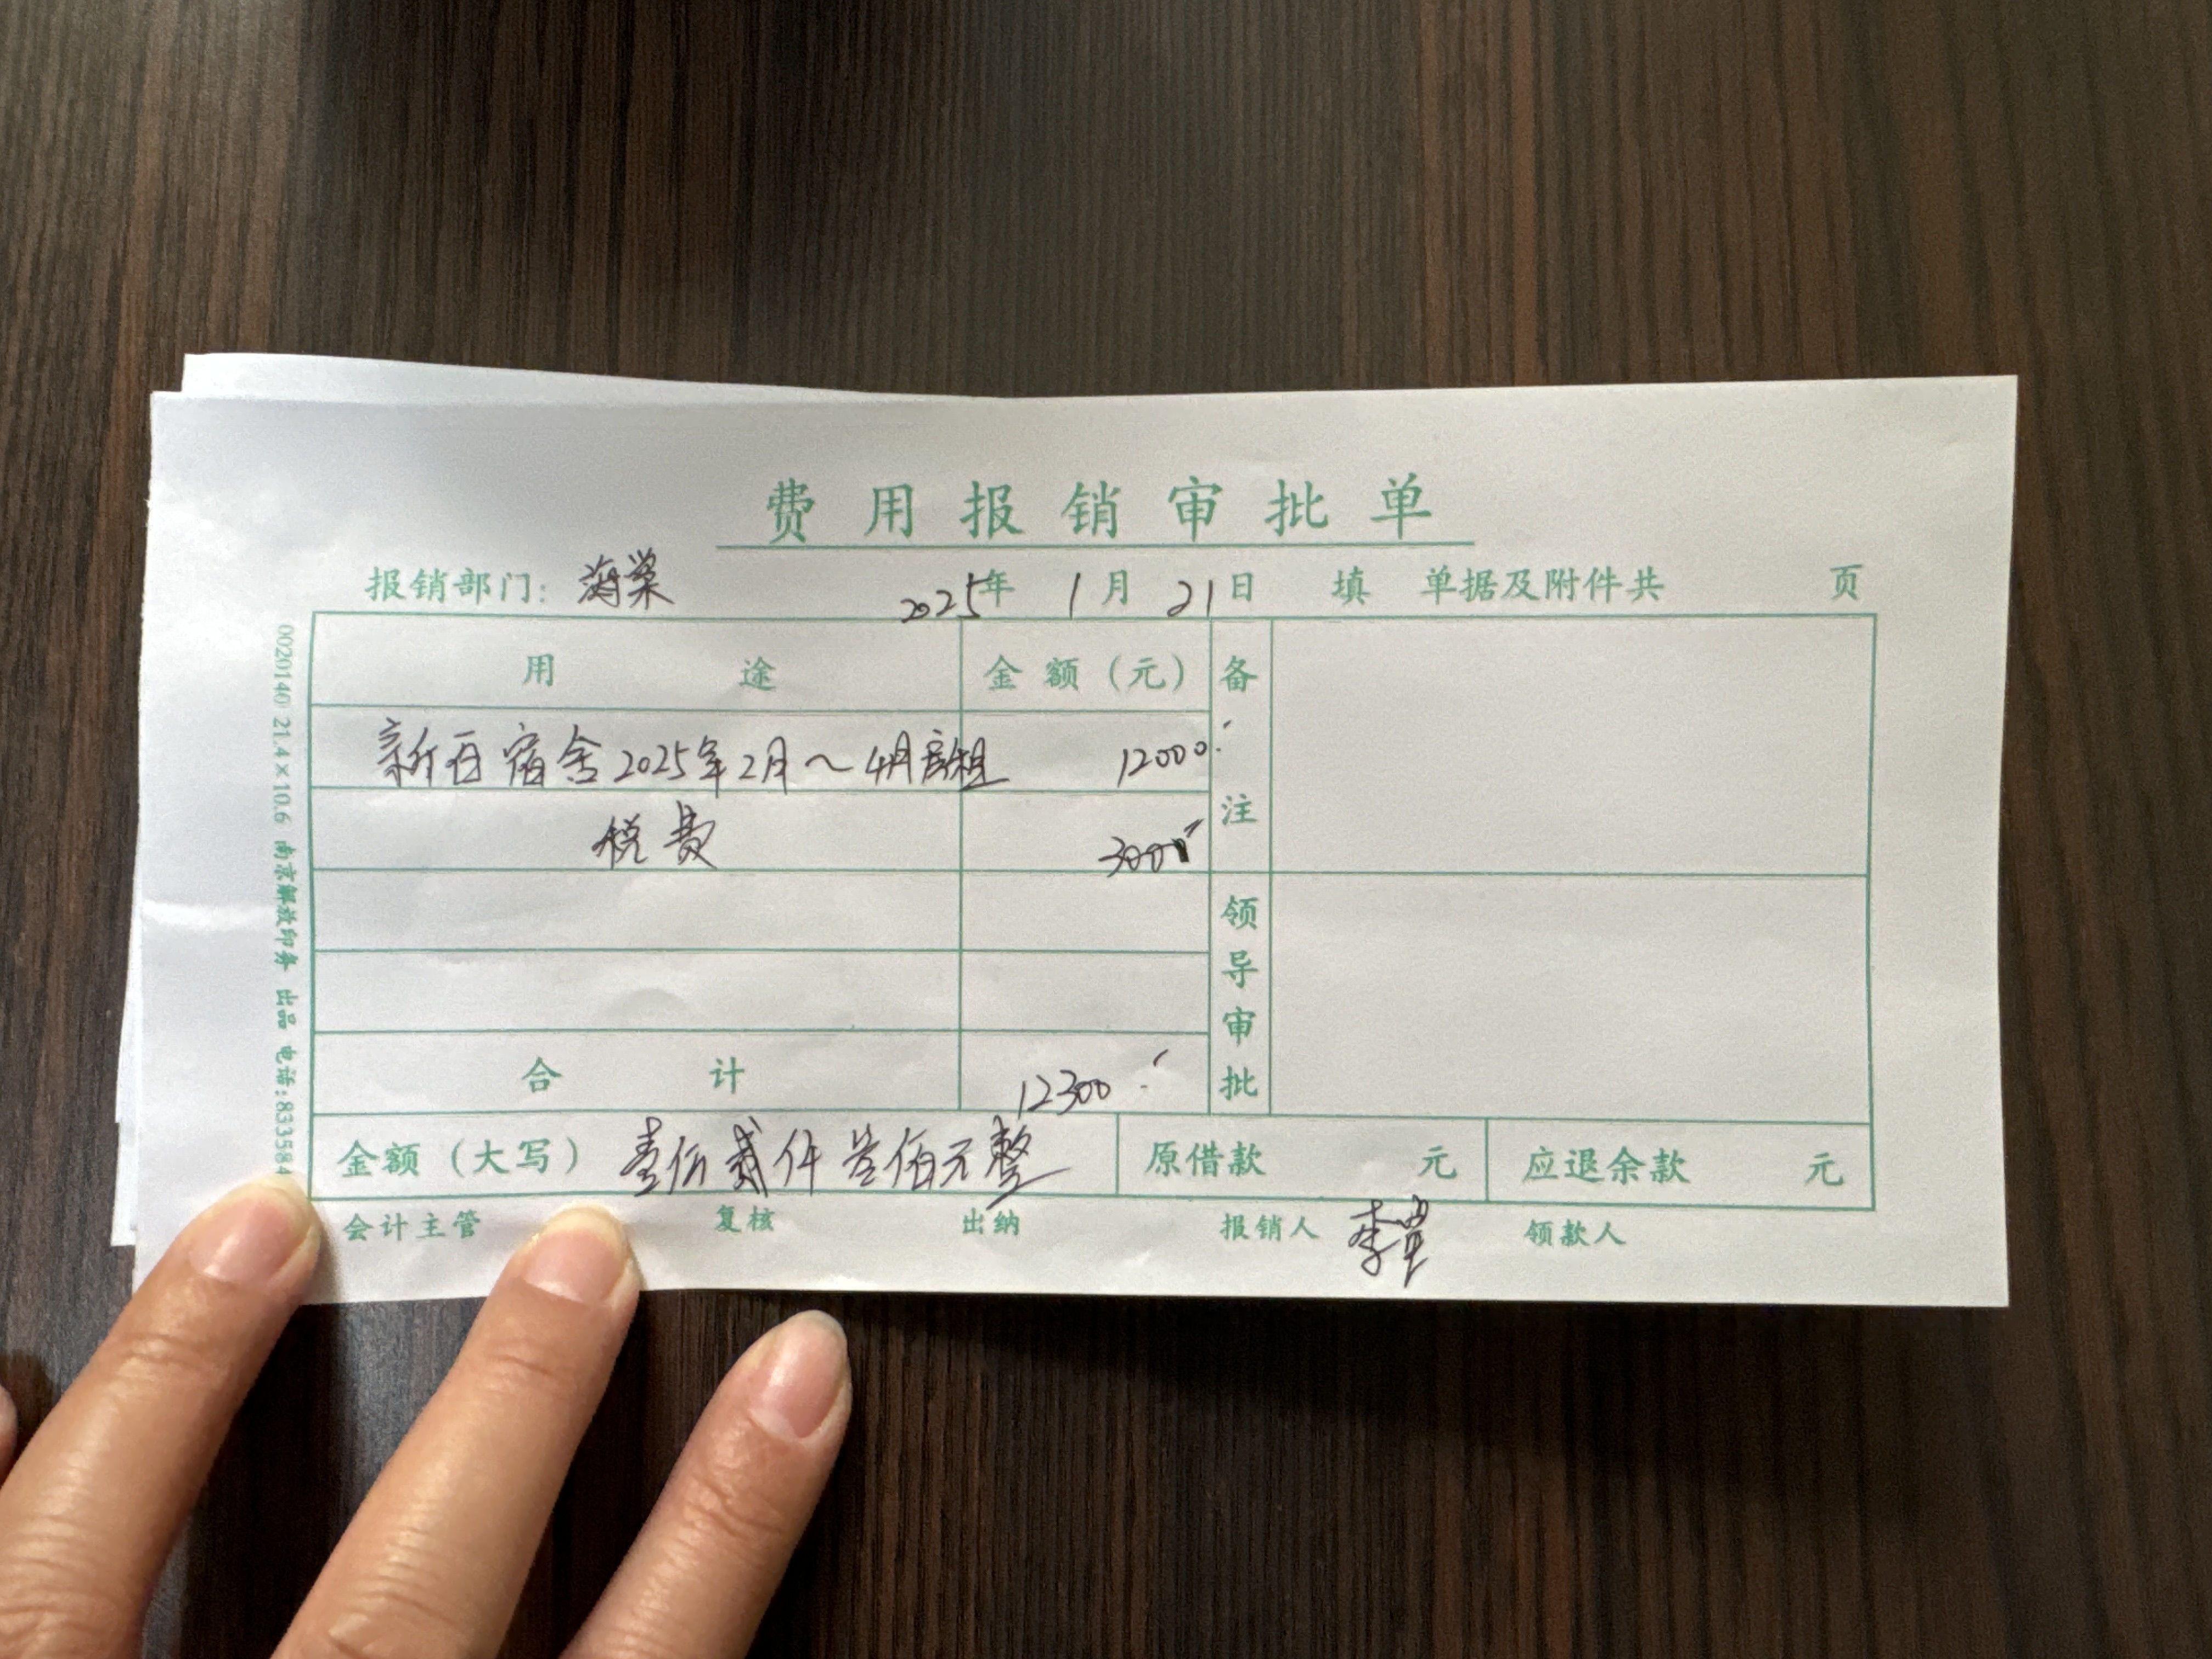 费用报销审批单
报销部门: 海棠 2025年 1月 21日 填 单据及附件共 页
用途 金额(元) 备注
新百宿舍2025年2月~4月房租 12000.-
税费
领导审批
合计 12300.-
金额(大写) 壹万贰仟叁佰元整 原借款 元 应退余款 元
会计主管 复核 出纳 报销人 李 领款人
0020140 21.4×10.6 南京解放印务 出品 电话:833584